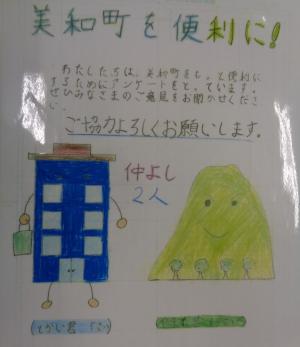 美和町を便利に!
わたしたちは、美和町をもっと便利に
するためにアンケートをとっています。
ぜひみなさまのご意見をお聞かせくださ
い。
ご協力よろしくお願いします。
仲よし
2人